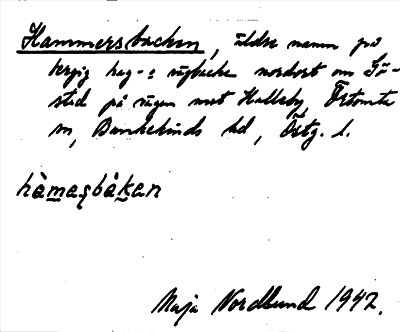 Hammersbacken, äldre namn på
bergig hag- o vägbacke nordost om Gr-
stad på vägen mot Halleby, Örtomta
sn, Bankekinds hd, Östg. l.
hàmaʂbàkan
Maja Nordlund 1942.